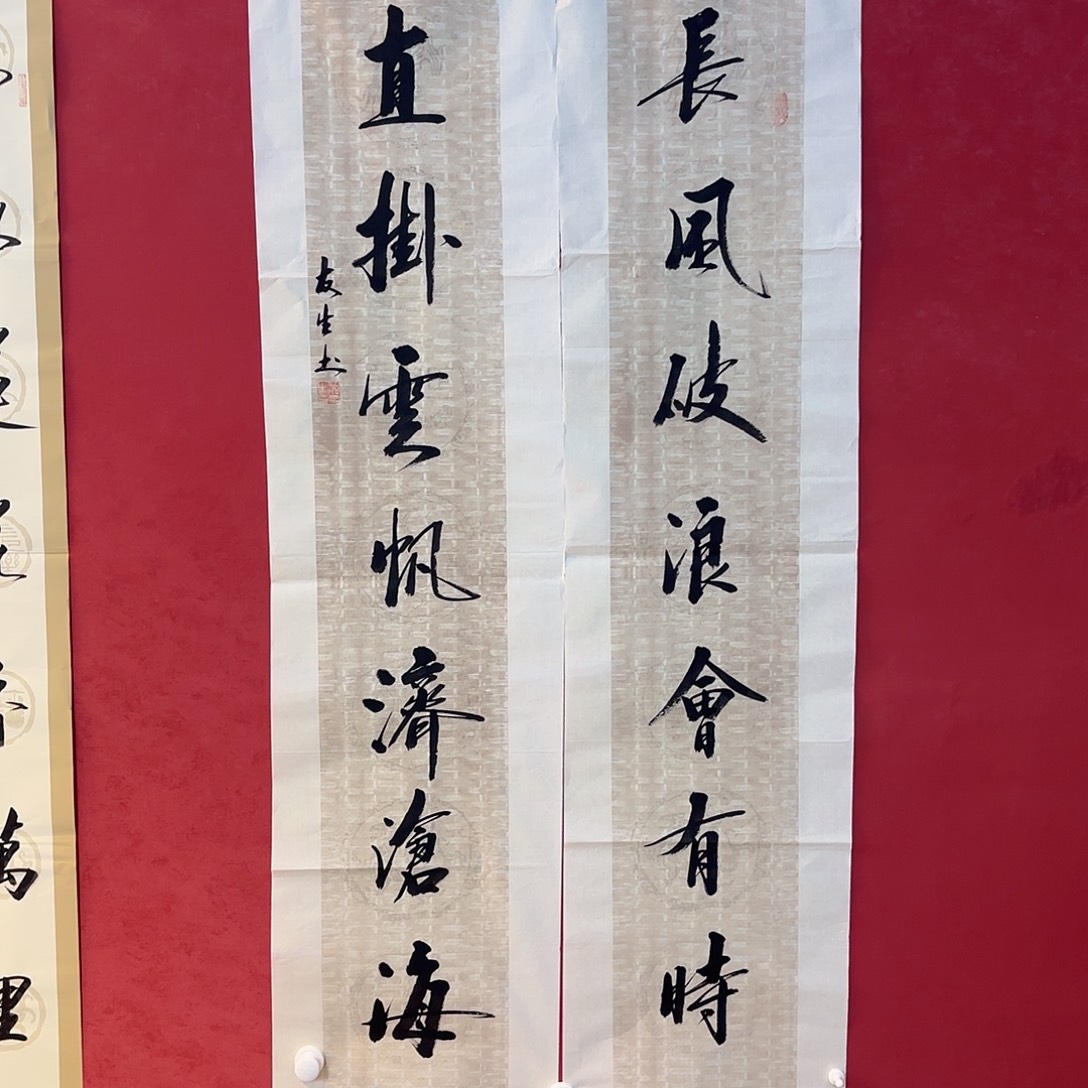 長風破浪會有時
直掛雲帆濟滄海
友生书
萬里